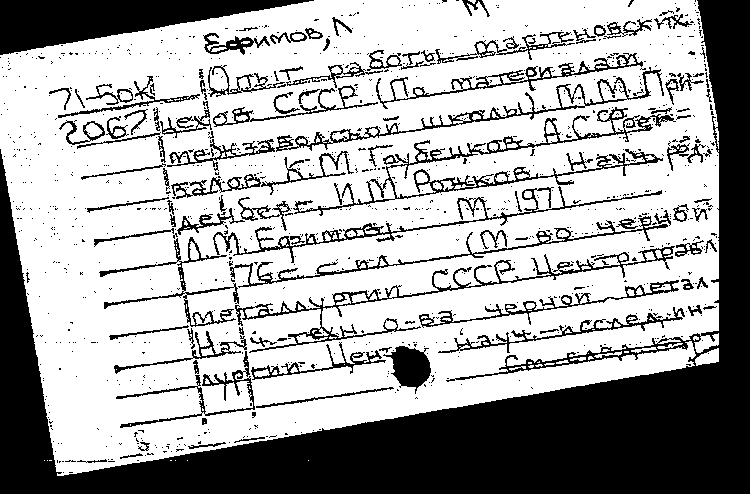 М
Ефимов, Л
71-50К Опыт работы мартеновских
2067 цехов СССР. (По материалам
межзаводской школы). М.М. При=
валов, К.М. Трубецков, А.С.
денберг, И.М. Рожков. Науч. ред.
Л.М. Ефимов. М., 1971.
76 с. с ил. (М-во черной
металлургии СССР. Центр. правл.
Науч.-техн. о-ва черной метал-
лургии. Центр. науч.-исслед. ин-
См. след. карт